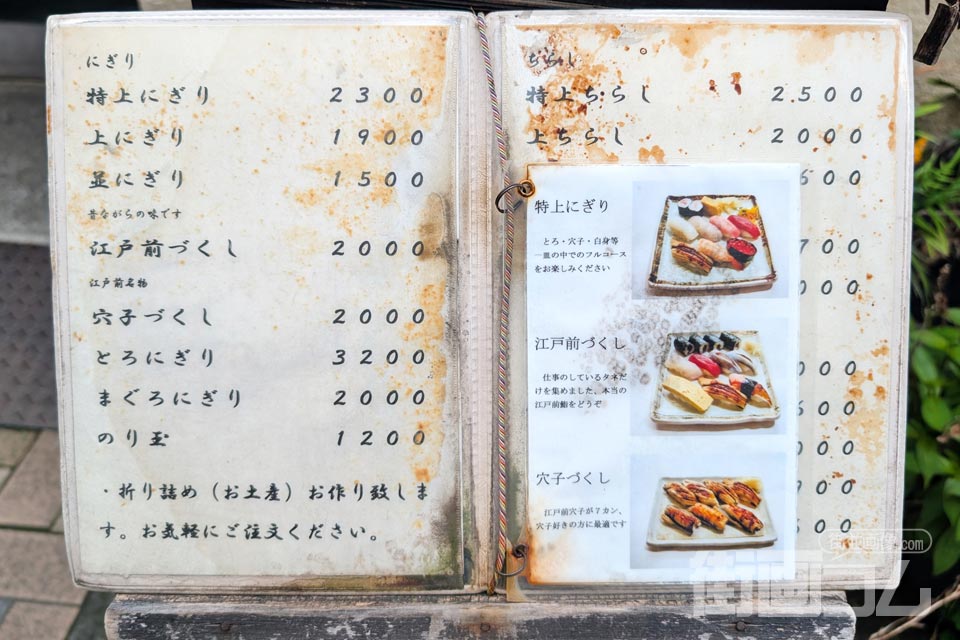 にぎり
特上にぎり 2300
上にぎり 1900
並にぎり 1500
昔ながらの味です
江戸前づくし 2000
江戸前名物
穴子づくし 2000
とろにぎり 3200
まぐろにぎり 2000
のり玉 1200
・折り詰め(お土産)お作り致しま
す。お気軽にご注文ください。
ちらし
特上ちらし 2500
上ちらし 2000
600
700
000
000
600
000
900
500
特上にぎり
とろ・穴子・白身等
一皿の中でのフルコース
をお楽しみください
江戸前づくし
仕事のしているタネだ
けを集めました、本当の
江戸前鮨をどうぞ
穴子づくし
江戸前穴子が7カン、
穴子好きの方に最適です
街画画像.com
街画コム